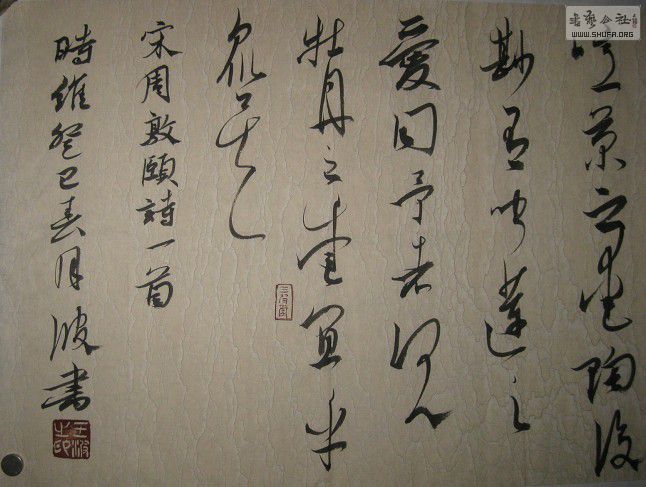 書藝公社
WWW.SHUFA.ORG
噫菊之愛陶後
尠有聞蓮之
愛同予者何人
牡丹之愛宜乎
眾矣
宋周敦頤詩一首
時維癸巳春月波書
王波之印